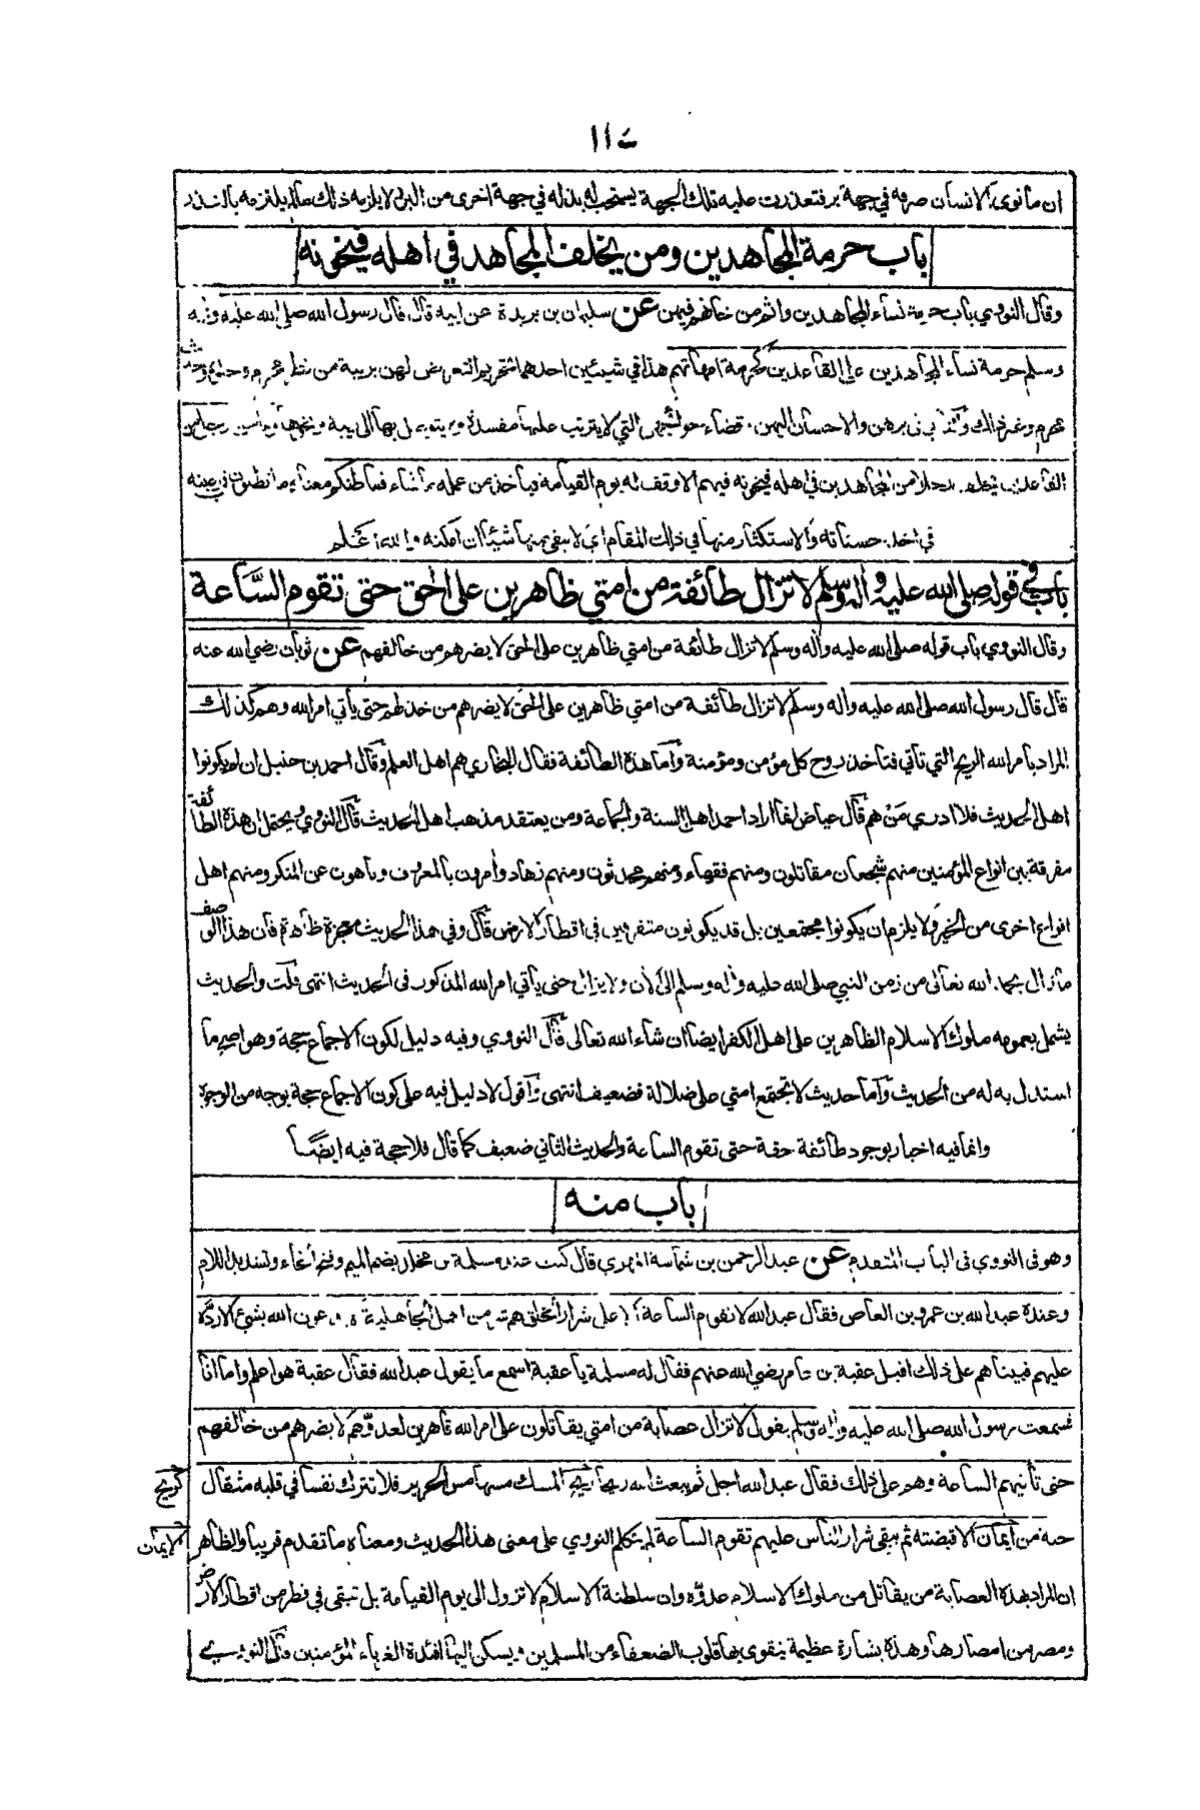 ان ما نوى الانسان صرفه في جهة بر فتعذرت عليه تلك الجهة يستحب له بذله في جهة اخرى من البر ولا يلزمه ذلك ما لم يلتزمه بالنذر
باب حرمة المجاهدين ومن يخلف المجاهد في اهله فيخونه
وقال النووي باب حرمة نساء المجاهدين واثم من خانهم فيهن عن سليمان بن بريدة عن ابيه قال قال رسول الله صلى الله عليه وآله
وسلم حرمة نساء المجاهدين على القاعدين كحرمة امهاتهم هذا في شيئين احدهما تحريم التعرض لهن بريبة من نظر محرم وخلوة وحديث
محرم وغير ذلك والثاني في برهن والاحسان اليهن وقضاء حوائجهن التي لا يترتب عليها مفسدة ولا يتوصل بها الى ريبة ونحوها وما من رجل من
القاعدين يخلف رجلا من المجاهدين في اهله فيخونه فيهم الا وقف له يوم القيامة فيأخذ من عمله ما شاء فما ظنكم معناه ما تظنون في رغبته
في اخذ حسناته والاستكثار منها في ذلك المقام اي لا يبقي منها شيئا ان امكنه والله اعلم
باب في قوله صلى الله عليه وآله وسلم لا تزال طائفة من امتي ظاهرين على الحق حتى تقوم الساعة
وقال النووي باب قوله صلى الله عليه وآله وسلم لا تزال طائفة من امتي ظاهرين على الحق لا يضرهم من خالفهم عن ثوبان رضي الله عنه
قال قال رسول الله صلى الله عليه وآله وسلم لا تزال طائفة من امتي ظاهرين على الحق لا يضرهم من خذلهم حتى يأتي امر الله وهم كذلك
المراد بامر الله الريح التي تأتي فتأخذ روح كل مؤمن ومؤمنة وأما هذه الطائفة فقال البخاري هم اهل العلم وقال احمد بن حنبل ان لم يكونوا
اهل الحديث فلا ادري من هم قال عياض انما اراد احمد اهل السنة والجماعة ومن يعتقد مذهب اهل الحديث قال النووي ويحتمل ان هذه الطائفة
مفرقة بين انواع المؤمنين منهم شجعان مقاتلون ومنهم فقهاء ومنهم محدثون ومنهم زهاد وآمرون بالمعروف وناهون عن المنكر ومنهم اهل
انواع اخرى من الخير ولا يلزم ان يكونوا مجتمعين بل قد يكونون متفرقين في اقطار الارض قال وفي هذا الحديث معجزة ظاهرة فان هذا الوصف
ما زال بحمد الله تعالى من زمن النبي صلى الله عليه وآله وسلم الى الآن ولا يزال حتى يأتي امر الله المذكور في الحديث انتهى قلت والحديث
يشمل بعمومه ملوك الاسلام الظاهرين على اهل الكفر ايضا ان شاء الله تعالى قال النووي وفيه دليل لكون الاجماع حجة وهو اصح ما
استدل به له من الحديث وأما حديث لا تجتمع امتي على ضلالة فضعيف انتهى وأقول لا دليل فيه على كون الاجماع حجة بوجه من الوجوه
وانما فيه اخبار بوجود طائفة حقة حتى تقوم الساعة والحديث الثاني ضعيف كما قال فلا حجة فيه ايضا
باب منه
وهو في النووي في الباب المتقدم عن عبد الرحمن بن شماسة المهري قال كنت عند مسلمة بن مخلد بضم الميم وفتح الخاء وتشديد اللام
وعنده عبد الله بن عمرو بن العاص فقال عبد الله لا تقوم الساعة الا على شرار الخلق هم شر من اهل الجاهلية لا يدعون الله بشيء الا رده
عليهم فبينما هم على ذلك اقبل عقبة بن عامر رضي الله عنهم فقال له مسلمة يا عقبة اسمع ما يقول عبد الله فقال عقبة هو اعلم واما انا
فسمعت رسول الله صلى الله عليه وآله وسلم يقول لا تزال عصابة من امتي يقاتلون على امر الله قاهرين لعدوهم لا يضرهم من خالفهم
حتى تأتيهم الساعة وهم على ذلك فقال عبد الله اجل ثم يبعث الله ريحا ريح المسك مسها مس الحرير فلا تترك نفسا في قلبه مثقال
كريح
حبة من ايمان الا قبضته ثم يبقى شرار الناس عليهم تقوم الساعة لم يتكلم النووي على معنى هذا الحديث ومعناه ما تقدم قريبا والظاهر
الايمان
ان المراد بهذه العصابة من يقاتل من ملوك الاسلام عدوه وان سلطنة الاسلام لا تزول الى يوم القيامة بل تبقى في قطر من اقطار الارض
ومصر من امصارها وهذه بشارة عظيمة يتقوى بها قلوب الضعفاء من المسلمين ويسكن اليها افئدة الغرباء المؤمنين قال النووي